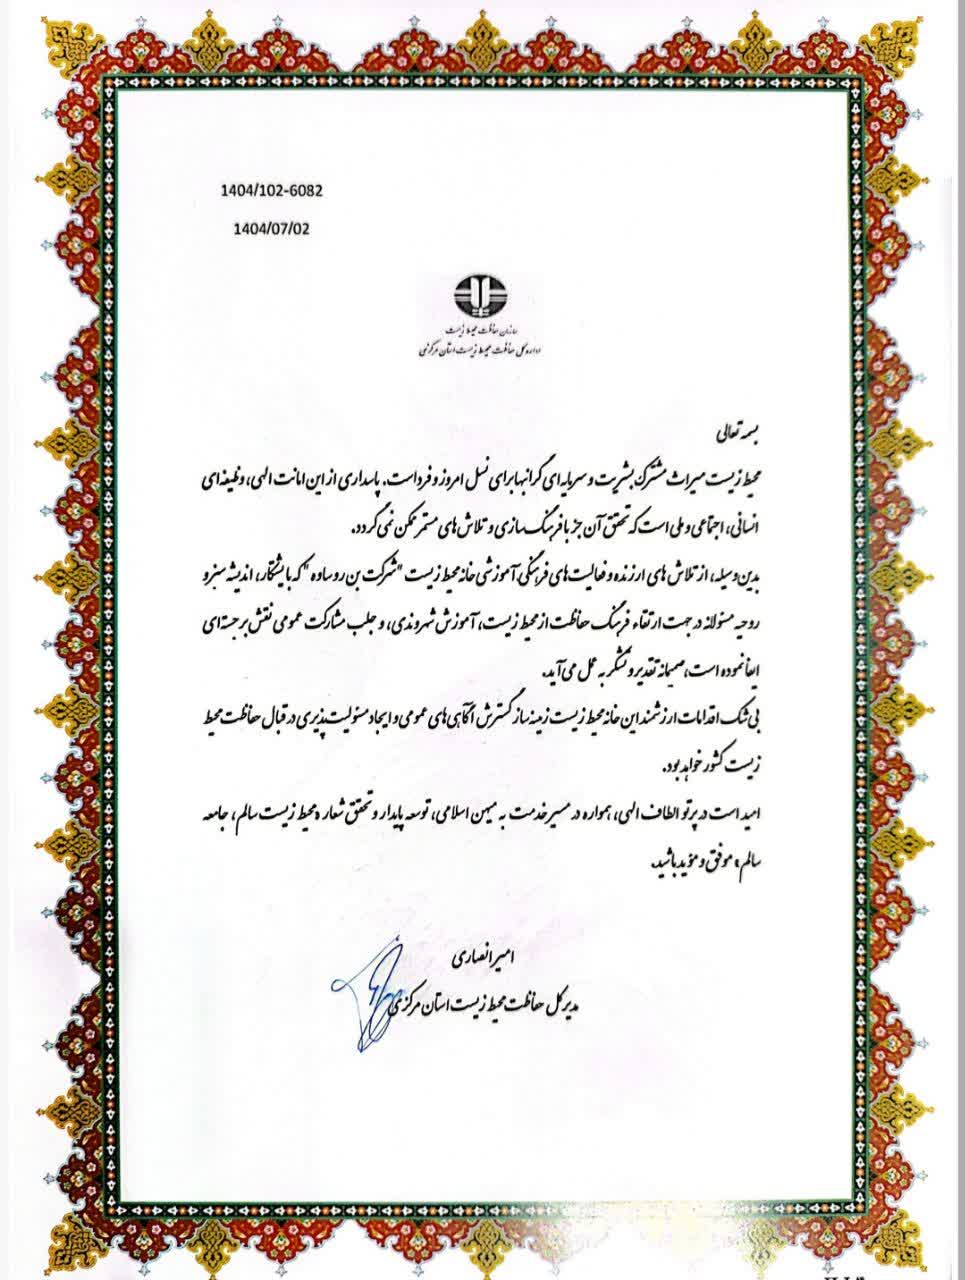 1404/102-6082
1404/07/02
سازمان حفاظت محیط زیست
اداره کل حفاظت محیط زیست استان مرکزی
بسمه تعالی
محیط زیست میراث مشترک بشریت و سرمایه ای گرانبها برای نسل امروز و فرداست. پاسداری از این امانت الهی، وظیفه ای
انسانی، اجتماعی و ملی است که تحقق آن جز با فرهنگ سازی و تلاش های مستمر ممکن نمی گردد.
بدین وسیله، از تلاش های ارزنده و فعالیت های فرهنگی، آموزشی خانه محیط زیست "شرکت بن رو ساده" که با پشتکار، اندیشه سبز و
روحیه مسئولانه در جهت ارتقاء فرهنگ حفاظت از محیط زیست، آموزش شهروندی، و جلب مشارکت عمومی نقش برجسته ای
ایفا نموده است، صمیمانه تقدیر و تشکر به عمل می آید.
بی شک اقدامات ارزشمند این خانه محیط زیست زمینه ساز گسترش آگاهی های عمومی و ایجاد مسئولیت پذیری در قبال حفاظت محیط
زیست کشور خواهد بود.
امید است در پرتو الطاف الهی، همواره در مسیر خدمت به میهن اسلامی، توسعه پایدار و تحقق شعار «محیط زیست سالم، جامعه
سالم» موفق و مؤید باشید.
امیر انصاری
مدیرکل حفاظت محیط زیست استان مرکزی